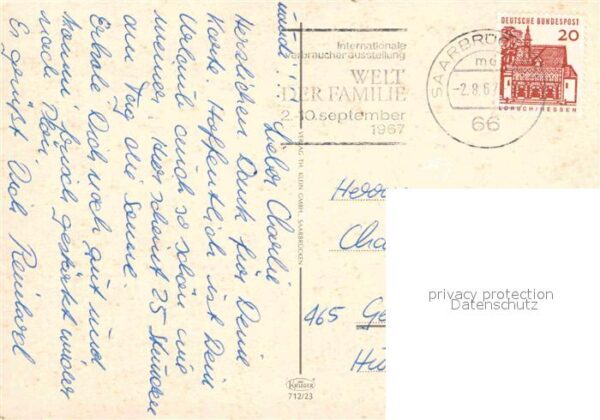 Lieber Charlie
Herzlichen Dank für Deine
Karte. Hoffentlich ist Dein
Urlaub auch so schön wie
meiner. Hier scheint 25 Stunden
am Tag die Sonne.
Erhole Dich noch gut und
komm frisch gestärkt wieder
nach
Es grüßt Dich Reinhard
Internationale
Verbraucherausstellung
WELT
DER FAMILIE
2.-10. september
1967
SAARBRÜC
-2.8.67
66
DEUTSCHE BUNDESPOST
20
LORSCH/HESSEN
VERLAG TH. KLEIN GMBH., SAARBRÜCKEN
Herrn
Cha
465 Ge
privacy protection
Datenschutz
KRÜGER
712/23